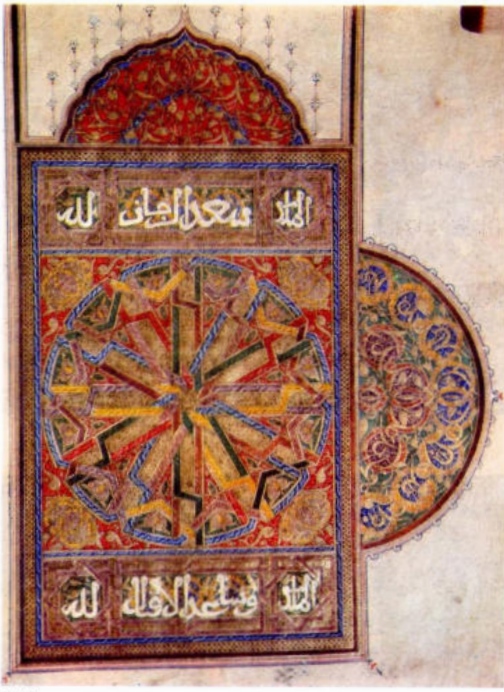 الملك سعد الزمان لله
الملك وساعد الاقبال لله